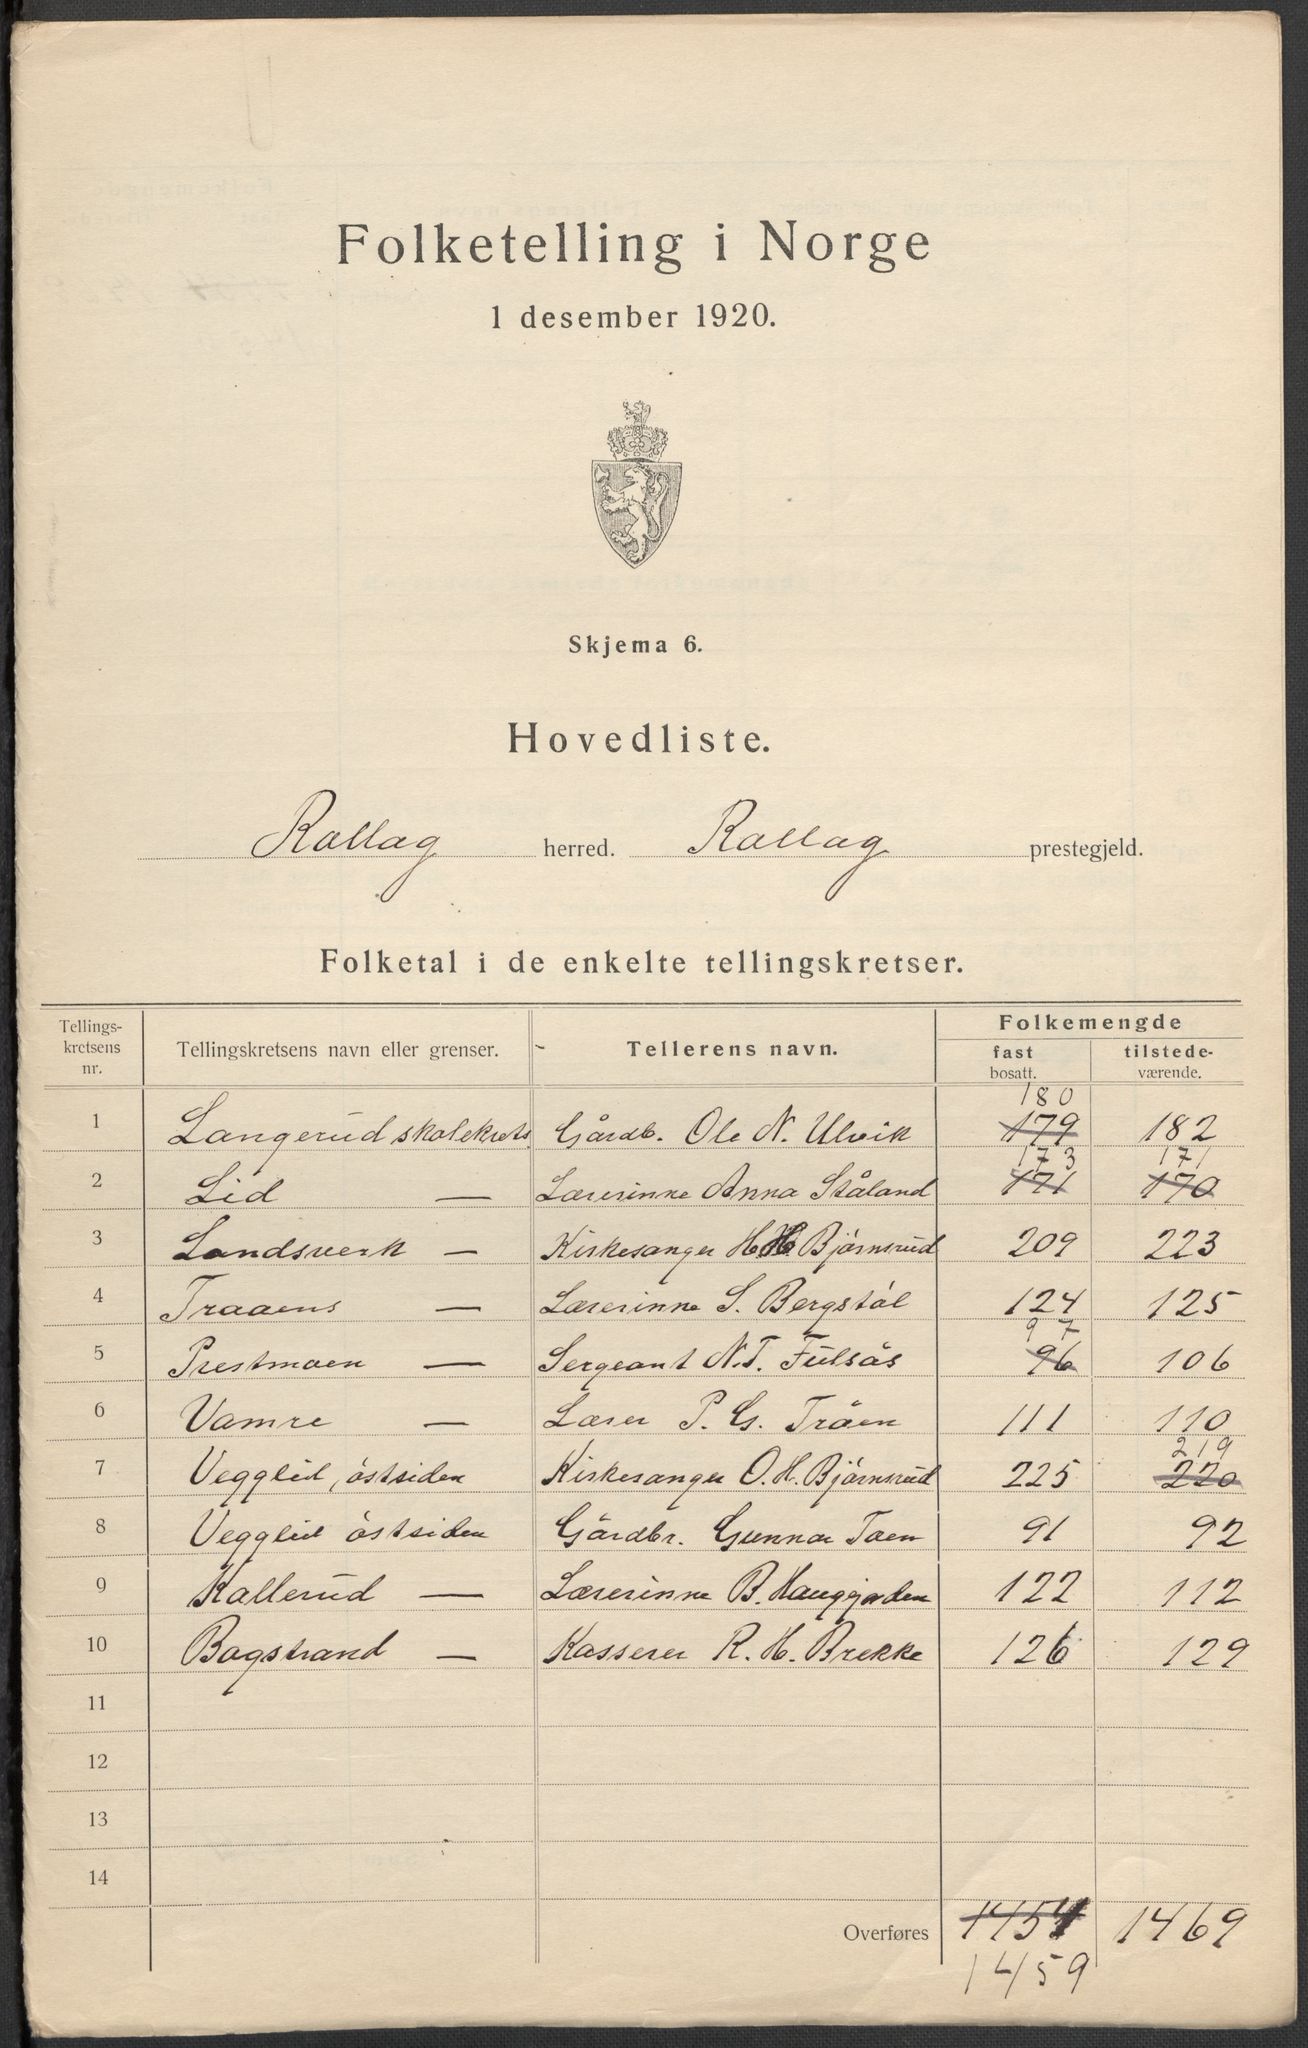 Folketelling i Norge
1 desember 1920.
Skjema 6.
Hovedliste.
Rollag herred. Rollag prestegjeld.
Folketal i de enkelte tellingskretser.
Tellings-
kretsens
nr.
Tellingskretsens navn eller grenser.
Tellerens navn.
Folkemengde
fast
bosatt.
tilstede-
værende.
180
1 Langerud skolekrets Gårdb. Ole N. Ulvik 179 182
173 171
2 Lid — Lærerinne Anna Ståland 171 170
3 Landsverk — Kirkesanger H. H. Bjørnsrud 209 223
4 Traaens — Lærerinne S. Bergstøl 124 125
97
5 Prestmoen — Sergeant N. T. Fulsås 96 106
6 Vamre — Lærer P. G. Tråen 111 110
219
7 Vegglid, östsiden Kirkesanger O. H. Bjørnsrud 225 220
8 Vegglid östsiden Gårdbr. Gunnar Taen 91 92
9 Kallerud — Lærerinne B. Haugjorden 122 112
10 Bogstrand — Kasserer R. H. Brekke 126 129
11
12
13
14
Overføres 1454 1469
1459